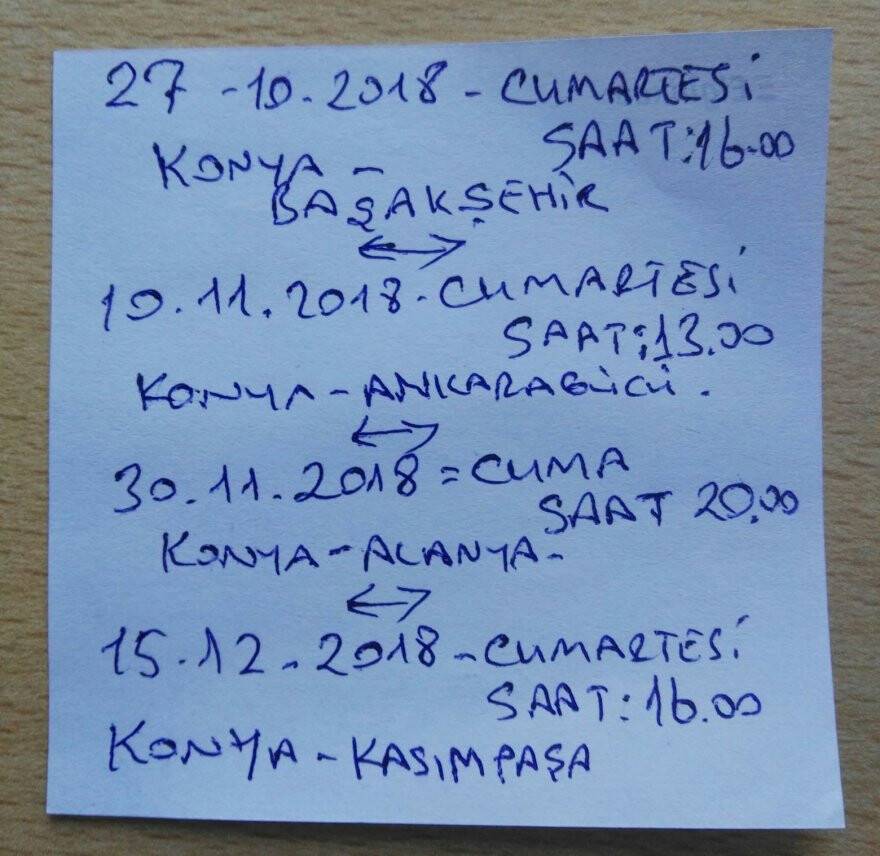 27-10.2018 - CUMARTESİ
SAAT:16.00
KONYA -
BAŞAKŞEHİR
10.11.2018. CUMARTESİ
SAAT:13.00
KONYA-ANKARAGÜCÜ.
30.11.2018 = CUMA
SAAT 20.00
KONYA-ALANYA-
15.12.2018-CUMARTESİ
SAAT:16.00
KONYA-KASIMPAŞA